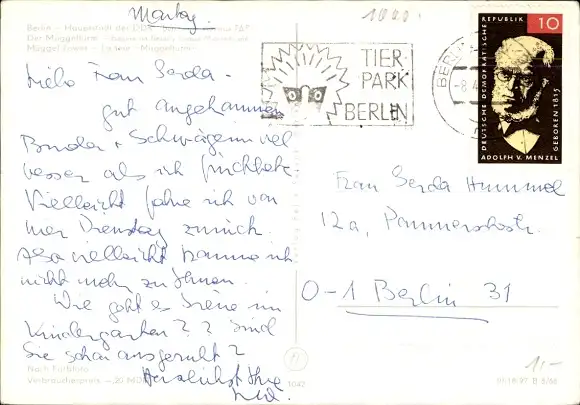 Montag.
1000.
Berlin - Hauptstadt der DDR
Der Müggelturm
Müggel Tower - La tour "Müggelturm"
Liebe Frau Gerda -
gut angekommen
Bruder + Schwägerin viel
besser als ich fürchtete
Vielleicht fahre ich von
hier Dienstag zurück.
Also vielleicht komme ich
nicht mehr zu Ihnen.
Wie geht es Irene im
Kindergarten?? Sind
Sie schon ausgeruht?
Herzlichst Ihre
TIER-
PARK
BERLIN
BERLIN
-8.4
DEUTSCHE DEMOKRATISCHE REPUBLIK 10
ADOLPH V. MENZEL
GEBOREN 1815
Frau Gerda Hummel
12a, Pommerstr.
O-1 Berlin 31
Nach Farbfoto
Verbraucherpreis -,20 MDN
1042
1,-